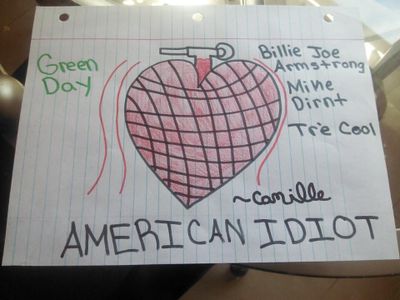 Green
Day
Billie Joe
Armstrong
Mike
Dirnt
Tré Cool
~Camille
AMERICAN IDIOT